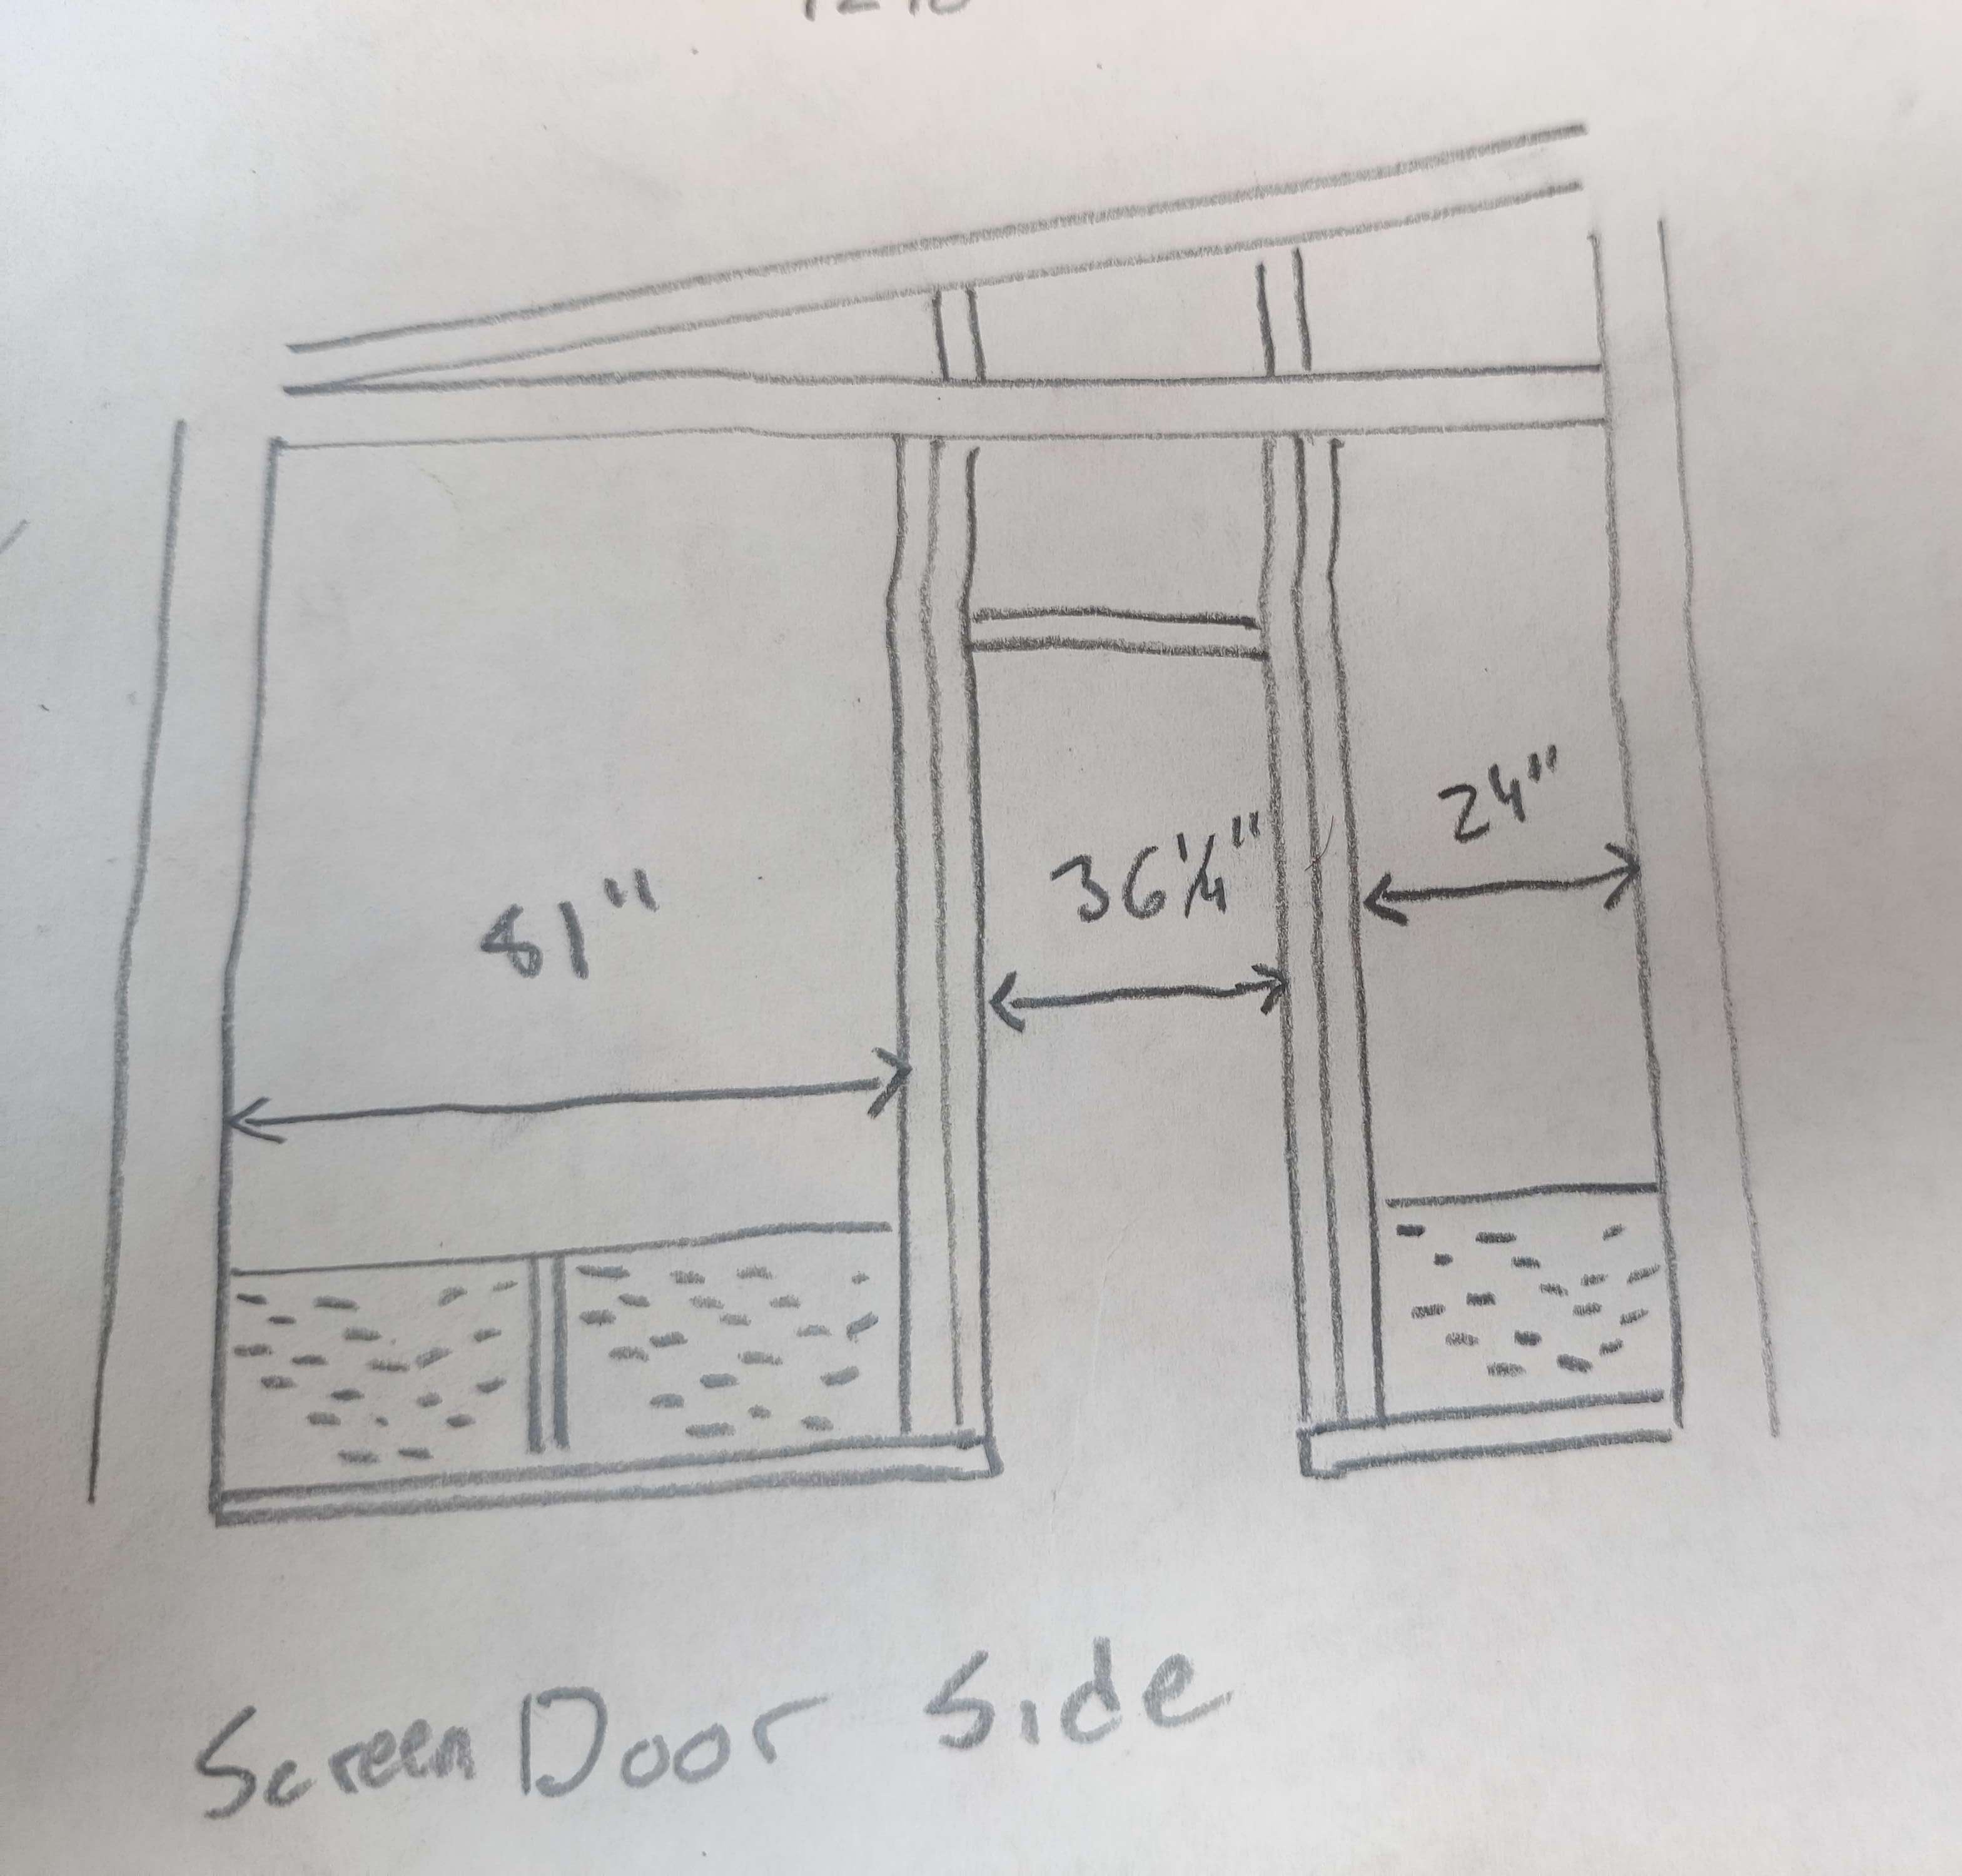 24"
36¼"
81"
Screen Door Side